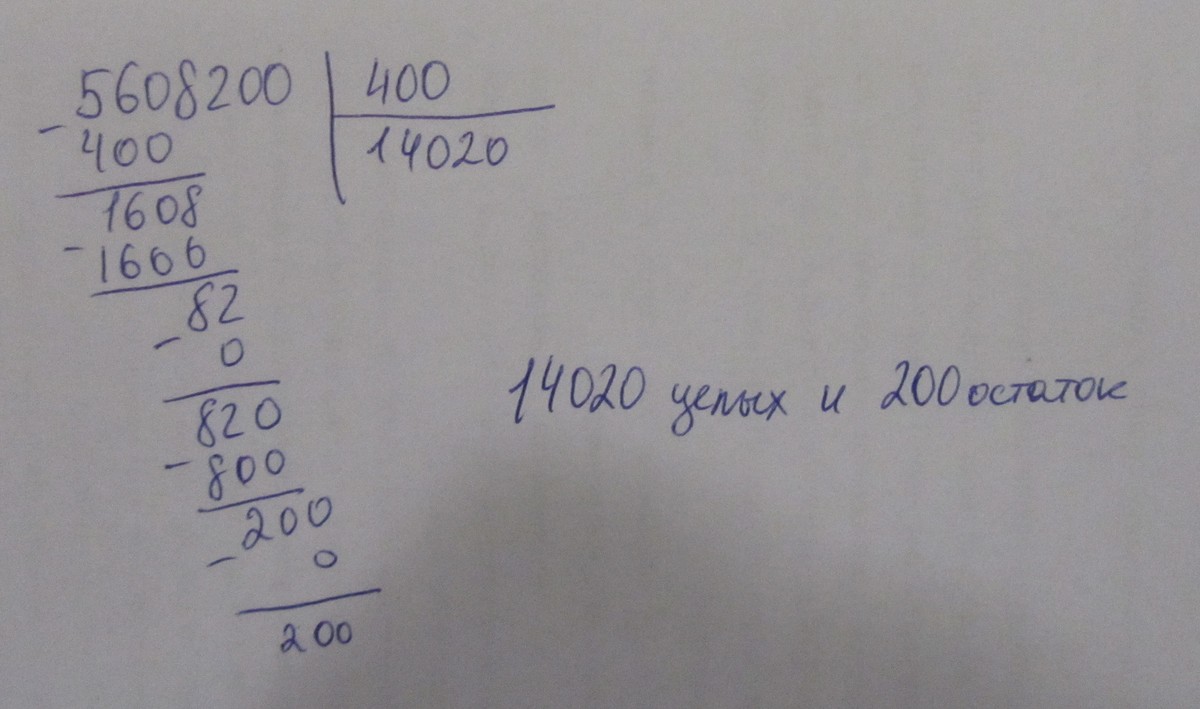 5608200 | 400
- 400 14020
1608
- 1600
82
- 0
820
- 800
200
- 0
200
14020 целых и 200 остаток